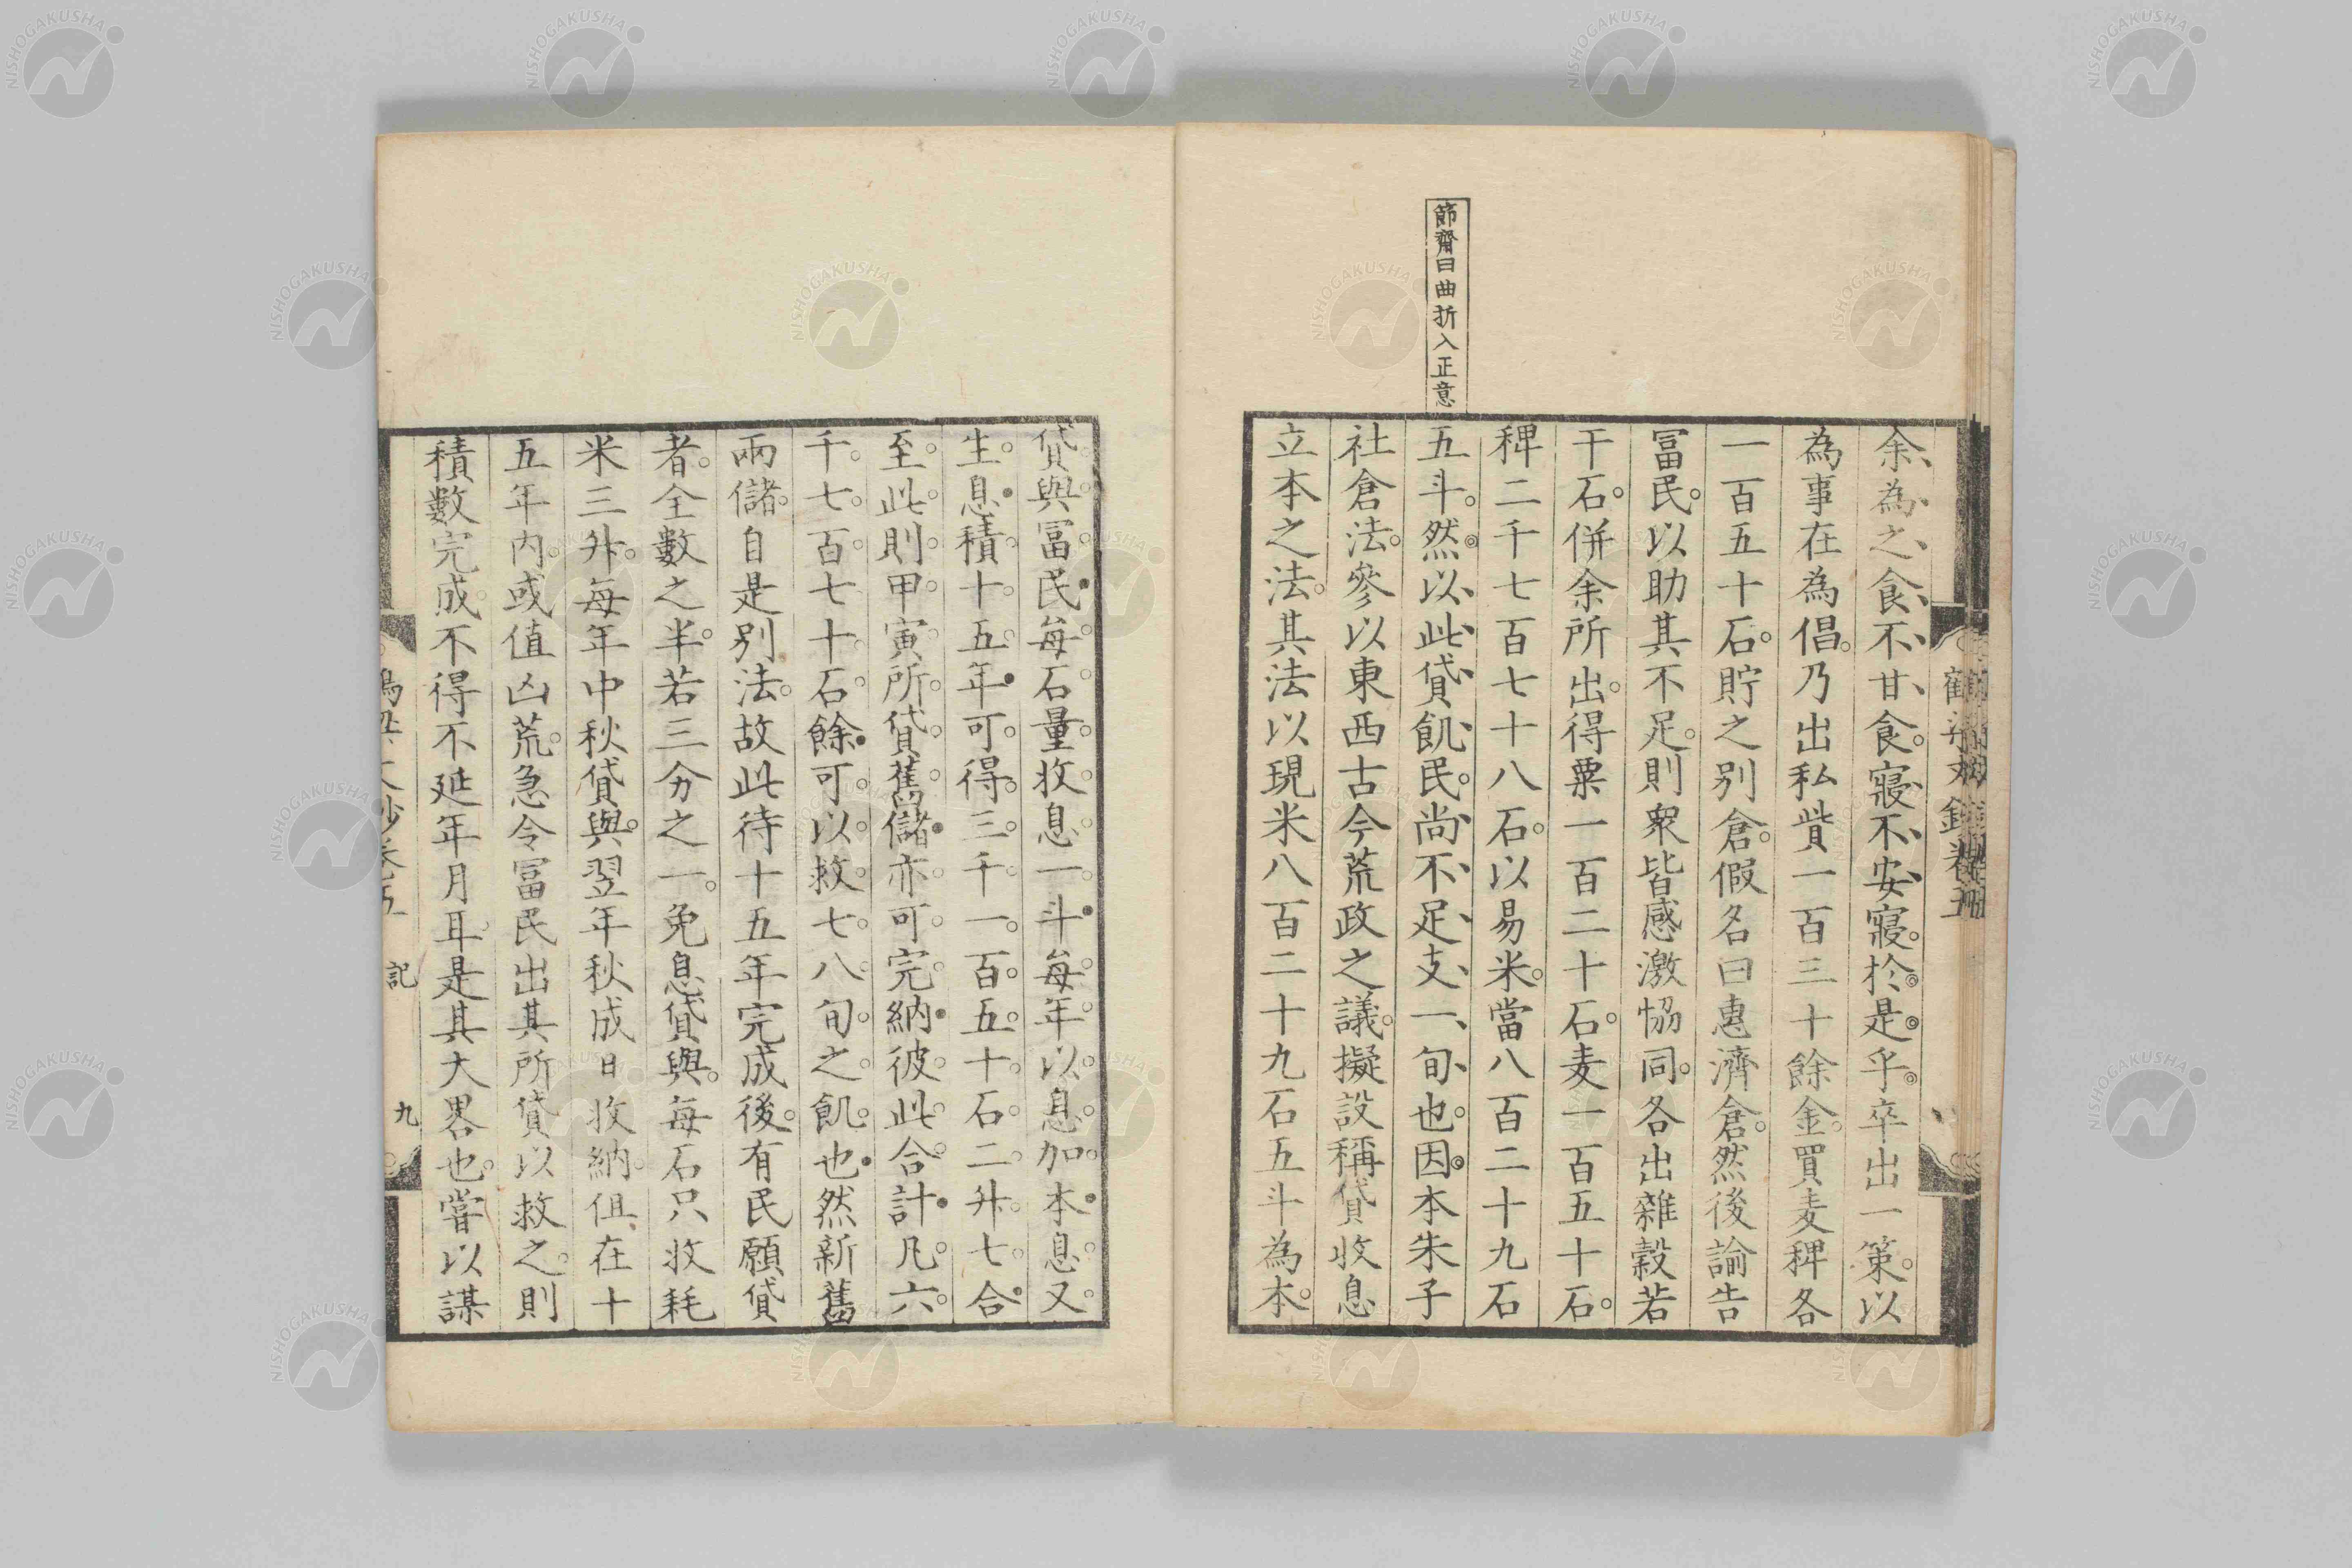 節齋曰曲折入正意
余為之食不甘食寢不安寢於是乎卒出一策以
為事在為倡乃出私貲一百三十餘金買麦稗各
一百五十石貯之別倉假名曰惠濟倉然後諭告
冨民以助其不足則衆皆感激恊同各出雜穀若
干石併余所出得粟一百二十石麦一百五十石
稗二千七百七十八石以易米當八百二十九石
五斗然以此貸飢民尚不足支一旬也因本朱子
社倉法參以東西古今荒政之議擬設稱貸收息
立本之法其法以現米八百二十九石五斗為本
貸與冨民每石量收息一斗每年以息加本息又
生息積十五年可得三千一百五十石二升七合
至此則甲寅所貸舊儲亦可完納彼此合計凡六
千七百七十石餘可以救七八旬之飢也然新舊
兩儲自是別法故此待十五年完成後有民願貸
者全數之半若三分之一免息貸與每石只收耗
米三升每年中秋貸與翌年秋成日收納但在十
五年内或值凶荒急令冨民出其所貸以救之則
積數完成不得不延年月耳是其大畧也嘗以謀
記
九
NISHOGAKUSHA